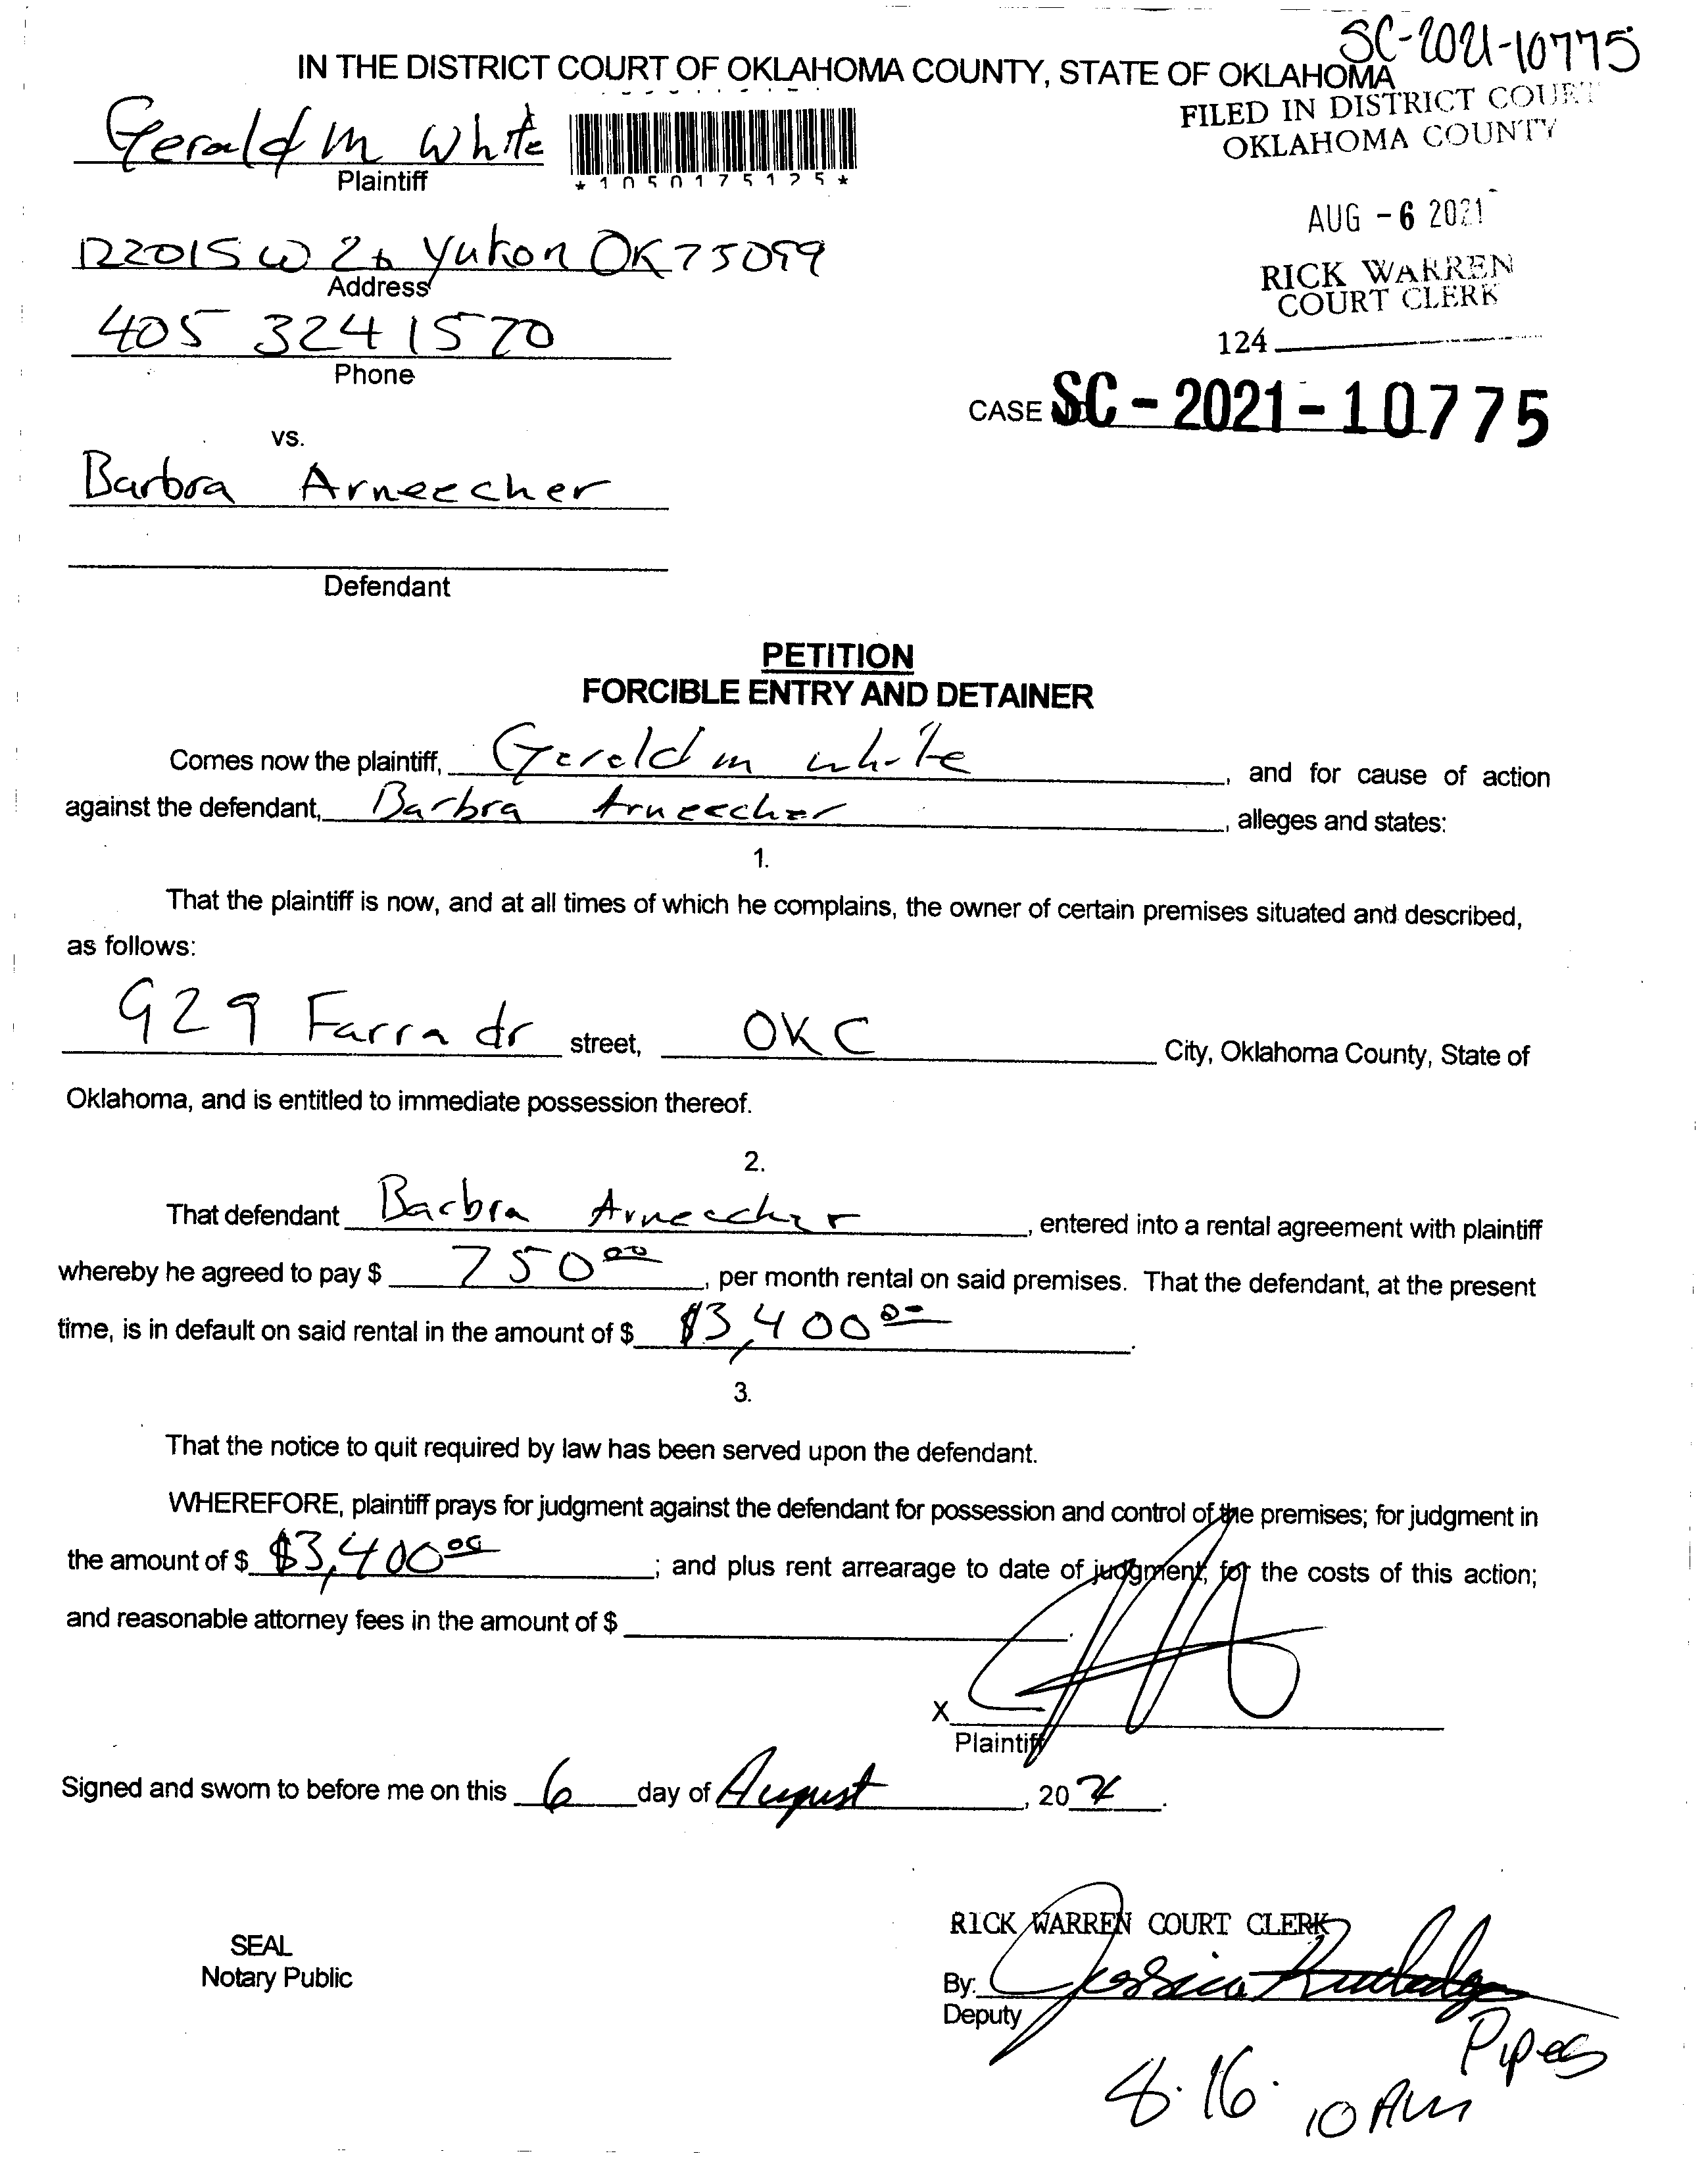 SC-2021-10775
IN THE DISTRICT COURT OF OKLAHOMA COUNTY, STATE OF OKLAHOMA
FILED IN DISTRICT COURT
OKLAHOMA COUNTY
Gerald m White
Plaintiff
*1050175125*
AUG -6 2021
12201 SW 26 Yukon OK 73099
Address
RICK WARREN
COURT CLERK
405 324 1570
Phone
124
CASE NO. SC-2021-10775
vs.
Barbra Arneecher
Defendant
PETITION
FORCIBLE ENTRY AND DETAINER
Comes now the plaintiff, Gerald m white, and for cause of action
against the defendant, Barbra Arneecher, alleges and states:
1.
That the plaintiff is now, and at all times of which he complains, the owner of certain premises situated and described,
as follows:
929 Farra dr street, OKC City, Oklahoma County, State of
Oklahoma, and is entitled to immediate possession thereof.
2.
That defendant Barbra Arneecher, entered into a rental agreement with plaintiff
whereby he agreed to pay $ 750 00, per month rental on said premises. That the defendant, at the present
time, is in default on said rental in the amount of $ $3,400 00.
3.
That the notice to quit required by law has been served upon the defendant.
WHEREFORE, plaintiff prays for judgment against the defendant for possession and control of the premises; for judgment in
the amount of $ $3,400 00; and plus rent arrearage to date of judgment, for the costs of this action;
and reasonable attorney fees in the amount of $
X
Plaintiff
Signed and sworn to before me on this 6 day of August, 2021.
RICK WARREN COURT CLERK
SEAL
Notary Public
By: Jessica
Deputy
Pipes
8.16. 10 AM